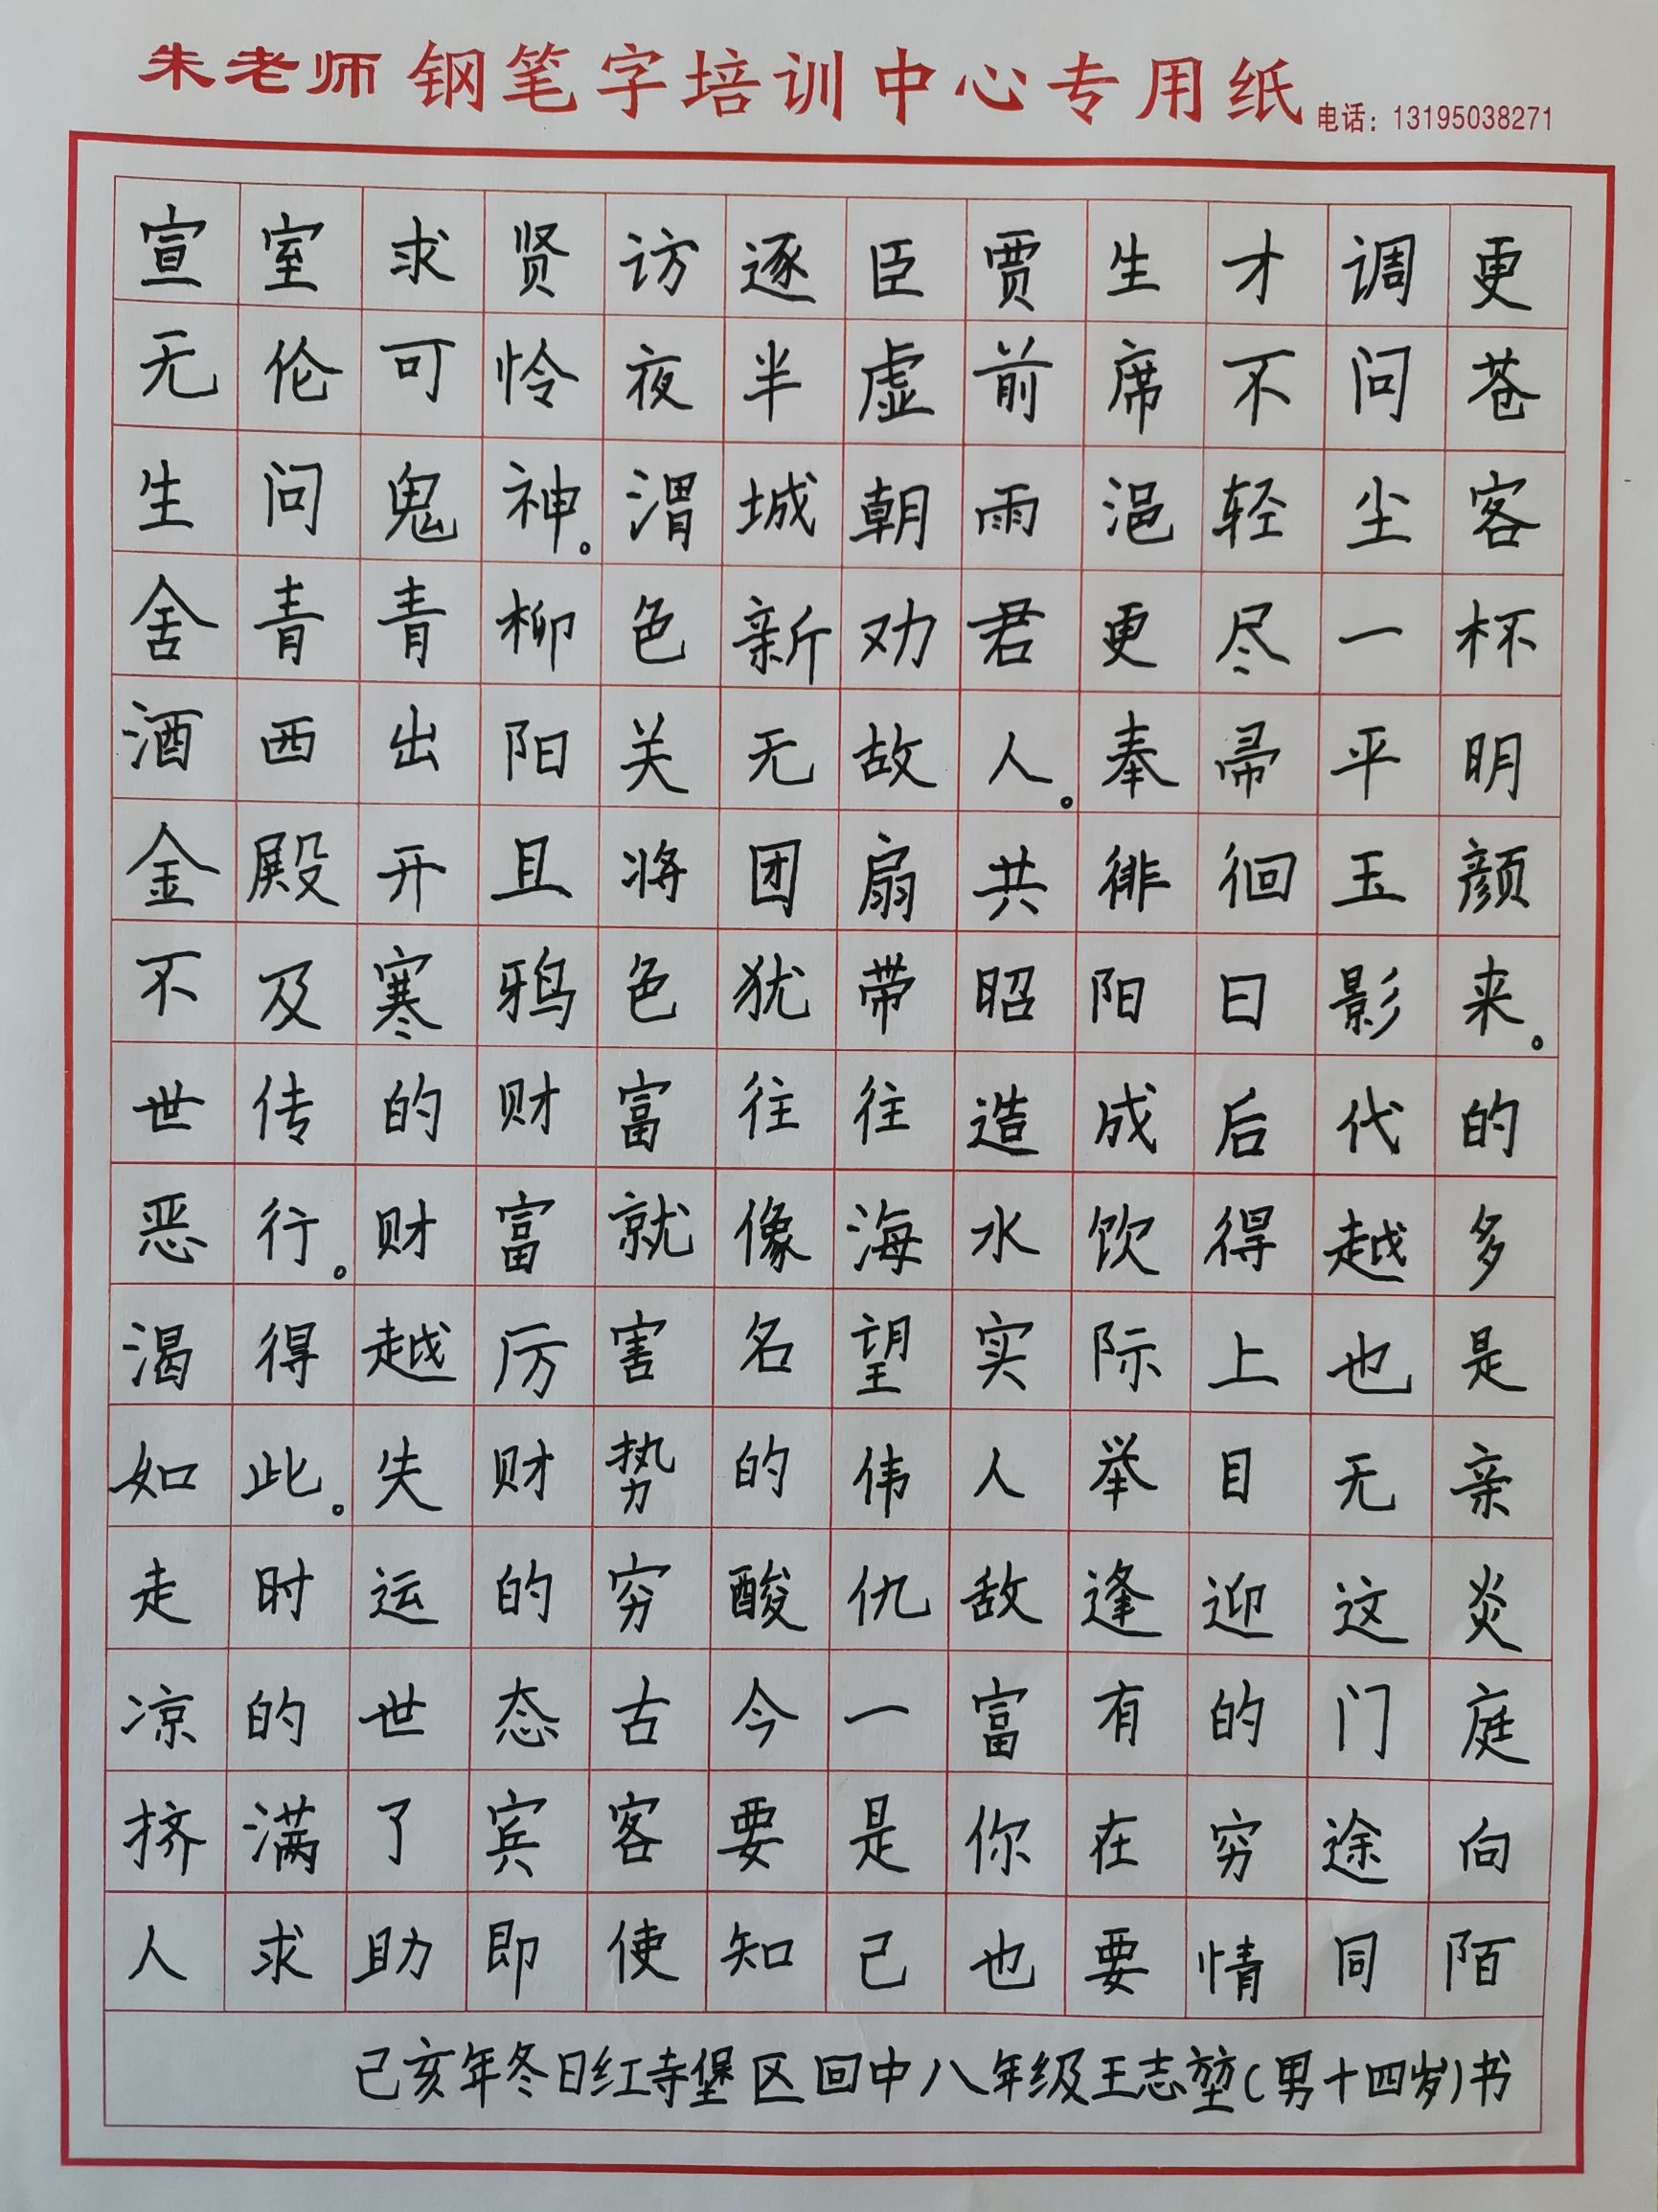 朱老师钢笔字培训中心专用纸 电话：13195038271
宣室求贤访逐臣贾生才调更
无伦可怜夜半虚前席不问苍
生问鬼神。渭城朝雨浥轻尘客
舍青青柳色新劝君更尽一杯
酒西出阳关无故人。奉帚平明
金殿开且将团扇共徘徊玉颜
不及寒鸦色犹带昭阳日影来。
世传的财富往往造成后代的
恶行。财富就像海水饮得越多
渴得越厉害名望实际上也是
如此。失财势的伟人举目无亲
走时运的穷酸仇敌逢迎这炎
凉的世态古今一富有的门庭
挤满了宾客要是你在穷途向
人求助即使知己也要情同陌
己亥年冬日红寺堡区回中八年级王志堃(男十四岁)书